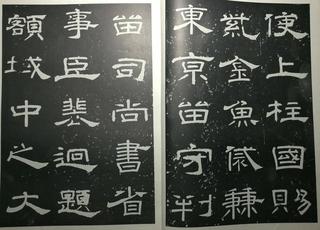 使上柱國賜
紫金魚袋兼
東京留守判
留司尚書省
事臣裴迥題
額域中之大